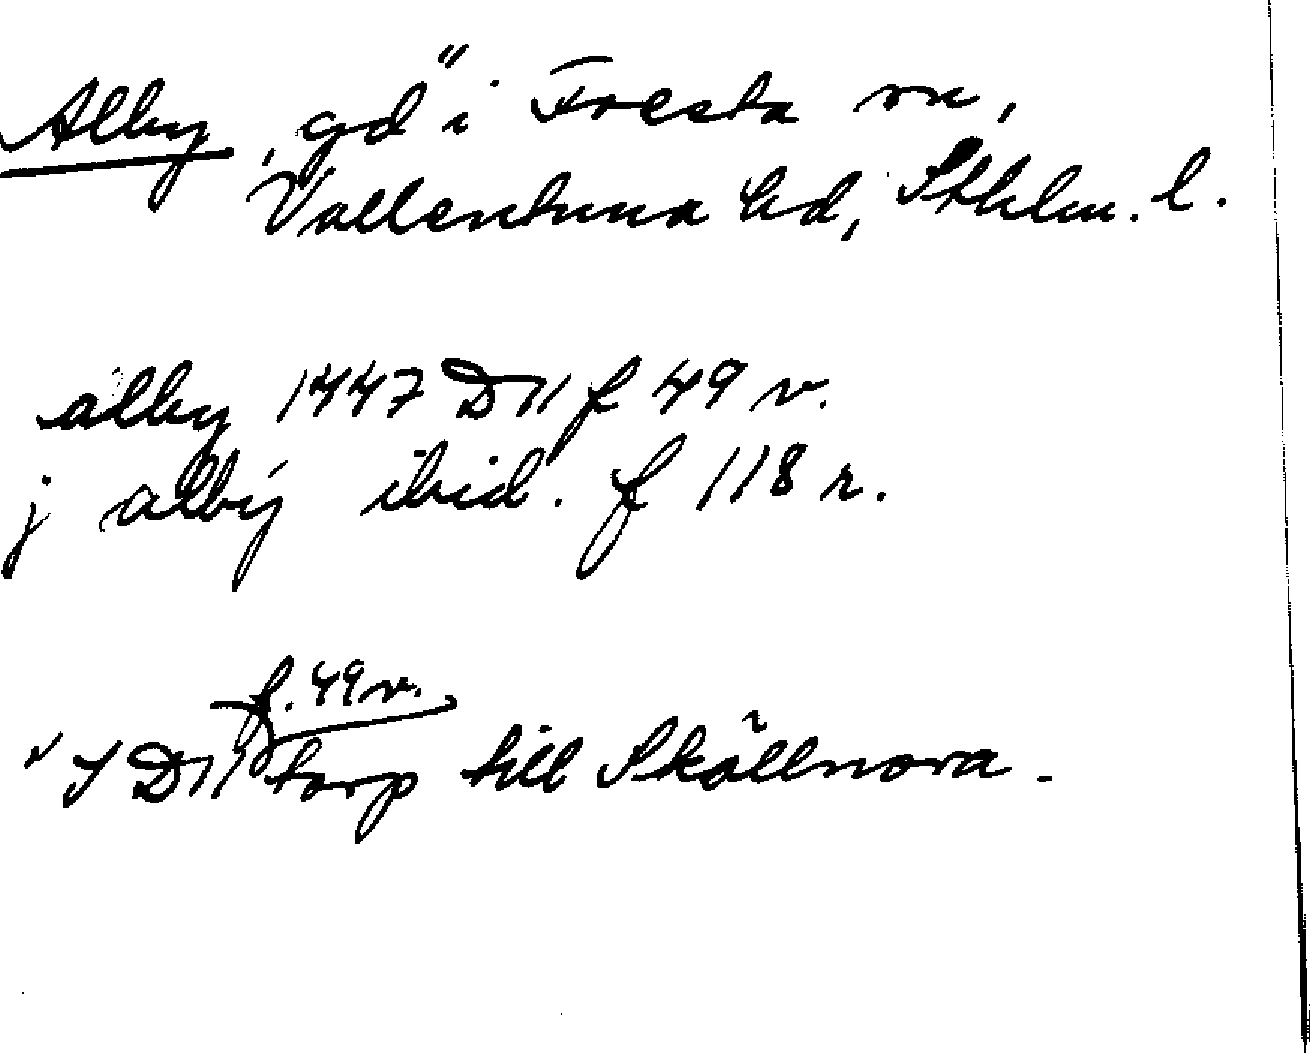 Alby, gd" i Fresta sn,
Vallentuna hd, Sthlm. l.
alby 1447 D11 f 49 v.
j albÿ ibid. f 118 r.
f. 49 v.
" I D11 torp till Skällnora.